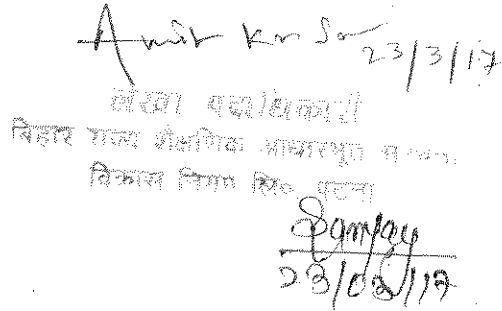 Amit Kr 23/3/17
लेखा पदाधिकारी
बिहार राज्य शैक्षणिक आधारभूत संरचना
विकास निगम लि० पटना
Sanjay
23/03/17